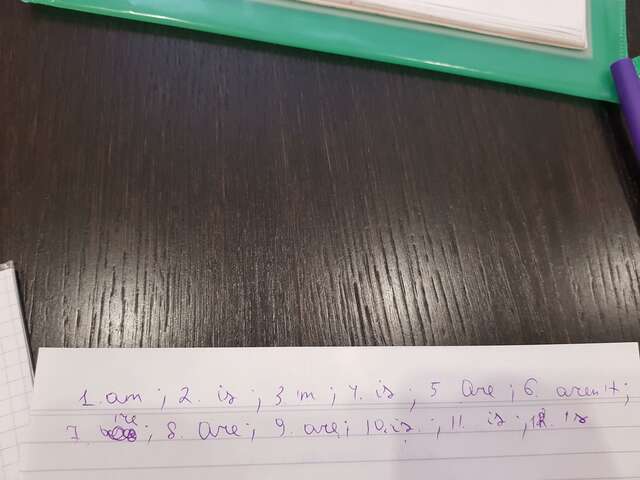 1. am ; 2. is ; 3 'm ; 4. is ; 5 are ; 6. aren't ;
7. 're ; 8. are ; 9. are ; 10. is. ; 11. is ; 12. is